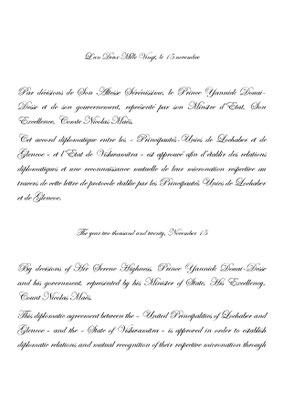 L'an Deux Mille Vingt, le 15 novembre
Par décisions de Son Altesse Sérénissime, le Prince Yannick Donai-
Desse et de son gouvernement, représenté par son Ministre d'Etat, Son
Excellence, Comte Nicolas Maës.
Cet accord diplomatique entre les « Principautés-Unies de Lochaber et de
Glencoe » et l'Etat de Vishwamitra » est approuvé afin d'établir des relations
diplomatiques et une reconnaissance mutuelle de leur micronation respective au
travers de cette lettre de protocole établie par les Principautés Unies de Lochaber
et de Glencoe.
The year two thousand and twenty, November 15
By decisions of Her Serene Highness, Prince Yannick Donai-Desse
and his government, represented by his Minister of State, His Excellency,
Count Nicolas Maës.
This diplomatic agreement between the « United Principalities of Lochaber and
Glencoe » and the « State of Vishwamitra » is approved in order to establish
diplomatic relations and mutual recognition of their respective micronation through